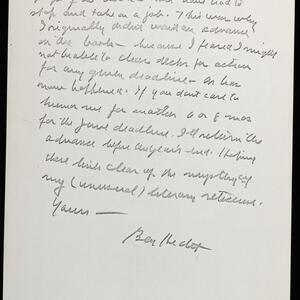 stop and take on a job. This was why
I originally didn't want an advance
on the book — because I feared I might
not be able to clear decks for action
for any given deadline. As has
now happened. If you don't care to
humor me for another 6 or 8 mos
for the June deadline, I'll return the
advance before the year's end. I hope
these lines clear up the mystery of
my (unusual) literary reticence.
Yours —
Ben Hecht